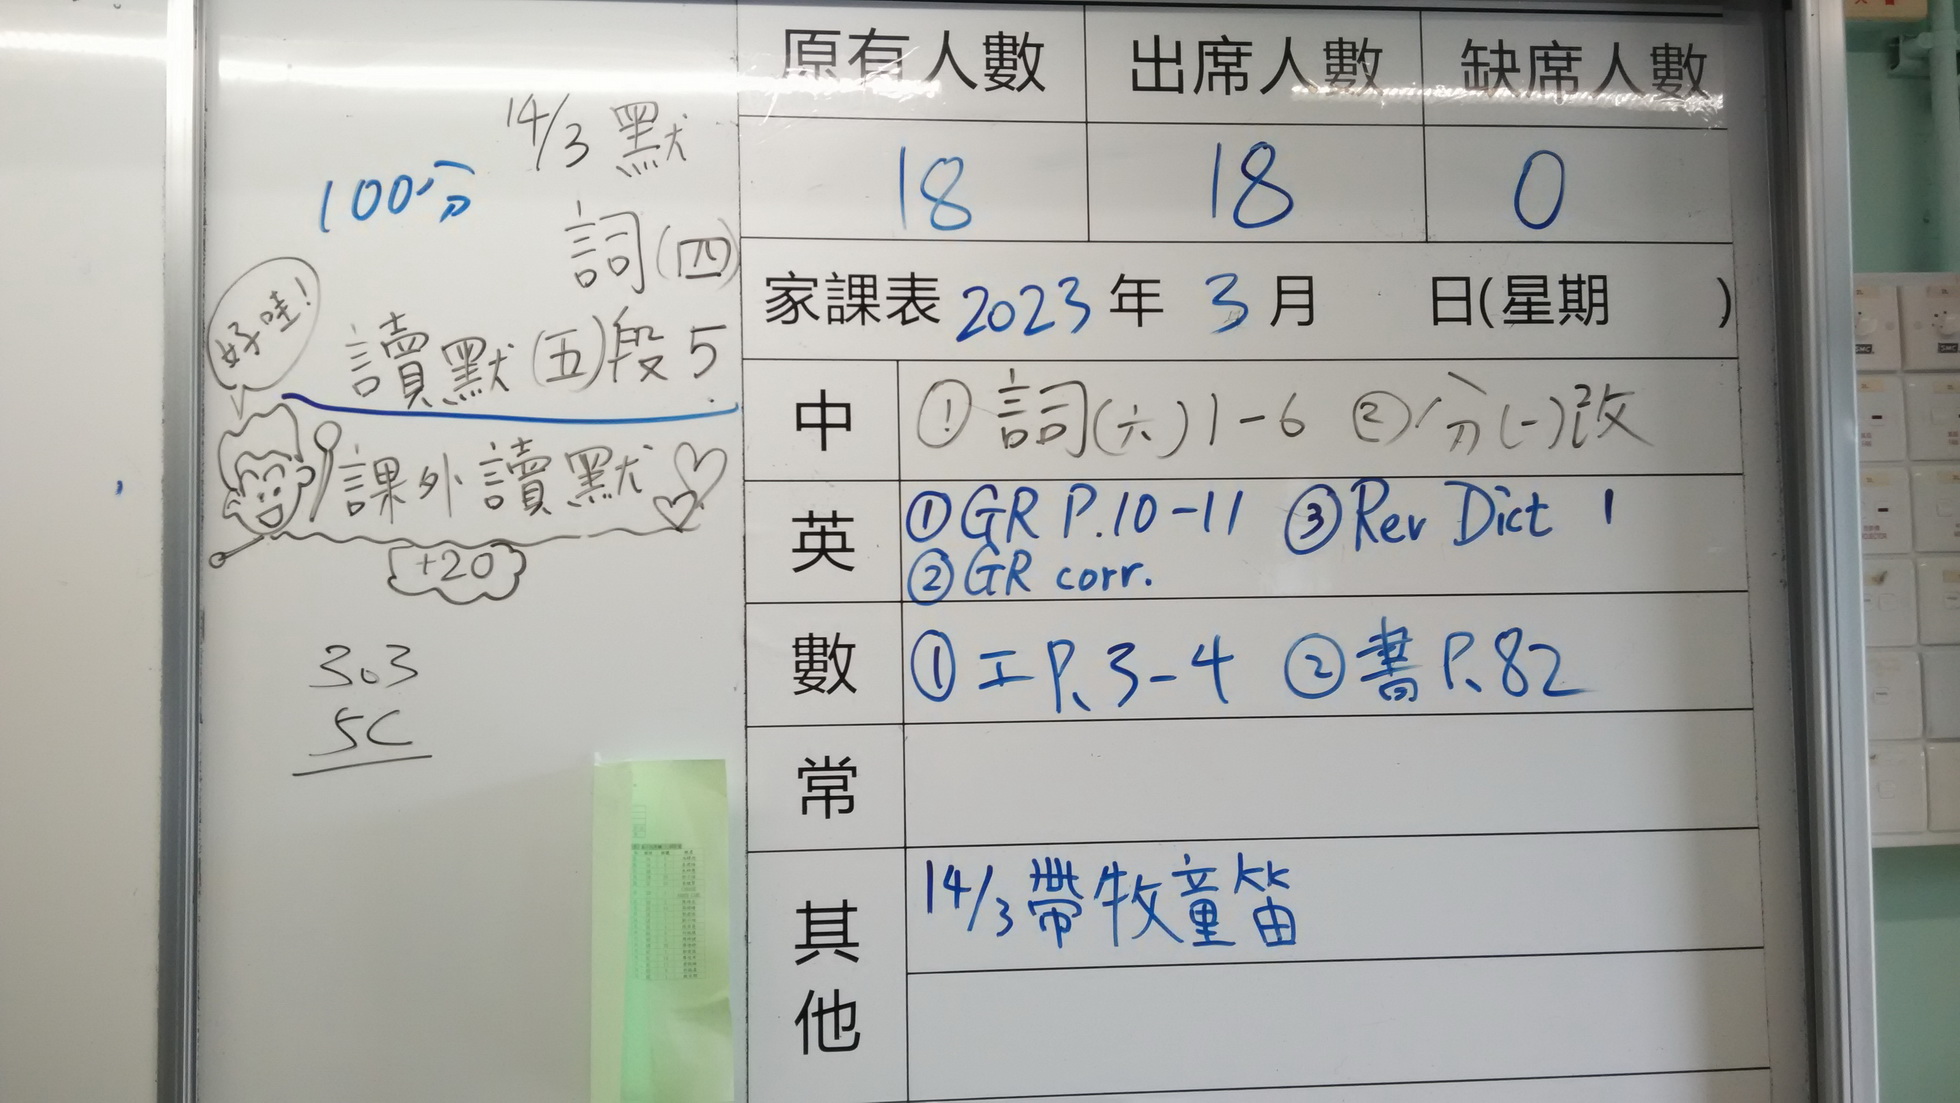 14/3 默
100分
詞(四)
好哇!
讀默(五)段5
課外讀默
+20
303
5C
原有人數 出席人數 缺席人數
18 18 0
家課表 2023 年 3 月 日(星期 )
中 ① 詞(六)1-6 ② 分(一)改
英 ① GR P.10-11 ③ Rev Dict 1
② GR corr.
數 ① 工 P.3-4 ② 書 P.82
常
其他 14/3 帶牧童笛